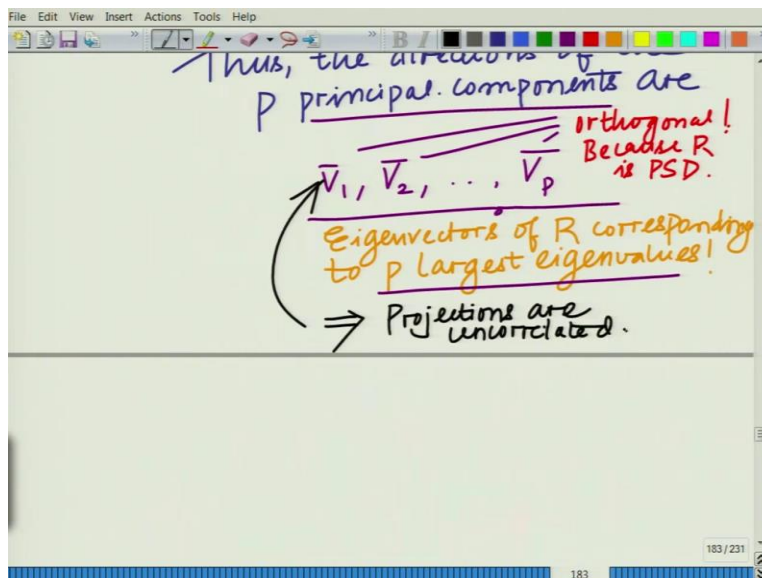 File Edit View Insert Actions Tools Help
Thus, the directions of the
P principal components are
V̅1, V̅2, ..., V̅P
orthogonal!
Because R
is PSD.
Eigenvectors of R corresponding
to P largest eigenvalues!
⇒ Projections are
uncorrelated.
183 / 231
183